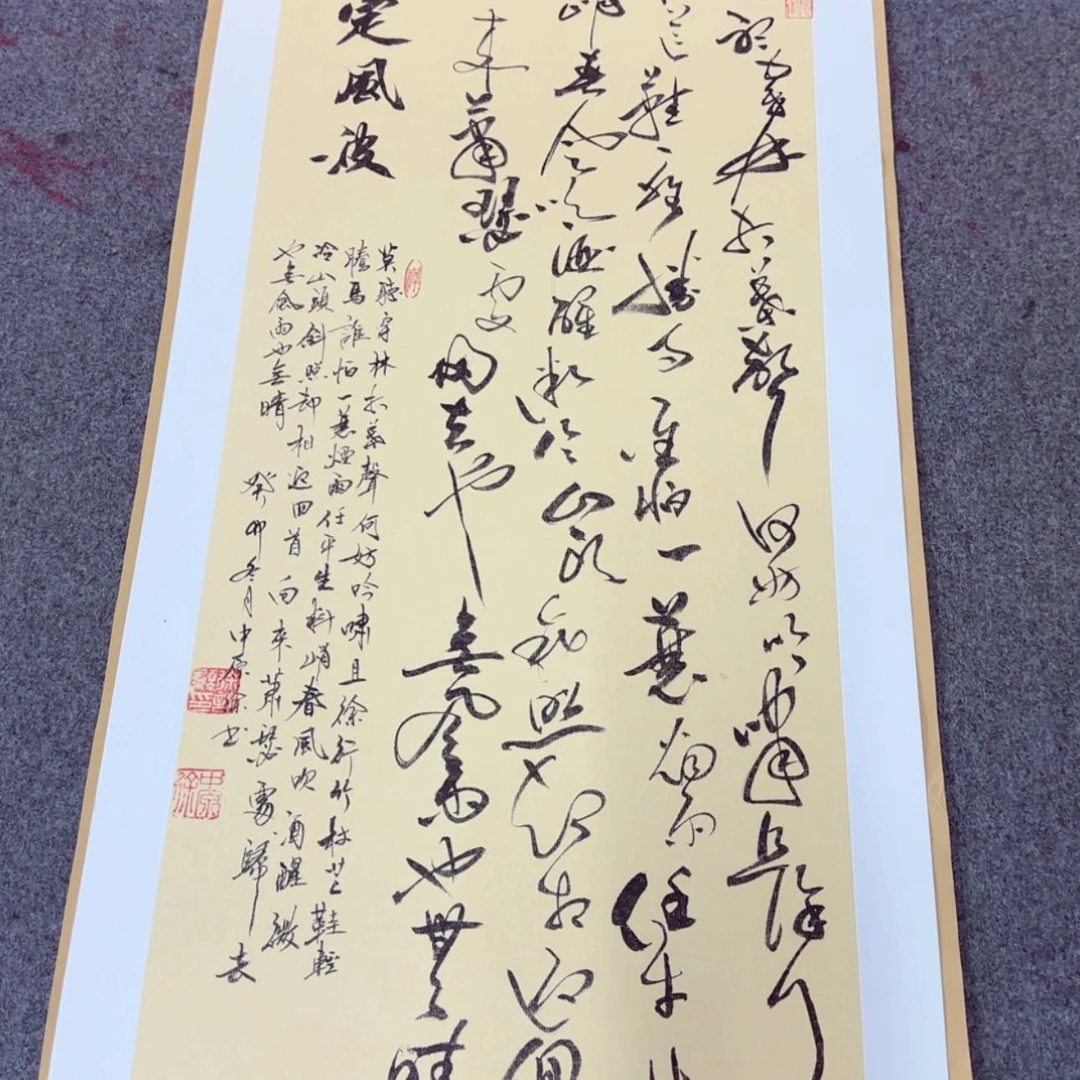 聽穿林打葉聲何妨吟嘯且徐行
芒鞋輕勝馬誰怕一蓑煙雨任平
峭春風吹酒醒微冷山頭斜照却相迎回
来蕭瑟處歸去也無風雨也無晴
定風波
莫聽穿林打葉聲何妨吟嘯且徐行竹杖芒鞋輕
勝馬誰怕一蓑煙雨任平生料峭春風吹酒醒微
冷山頭斜照却相迎回首向来蕭瑟處歸去
也無風雨也無晴
癸卯冬月中原徐书